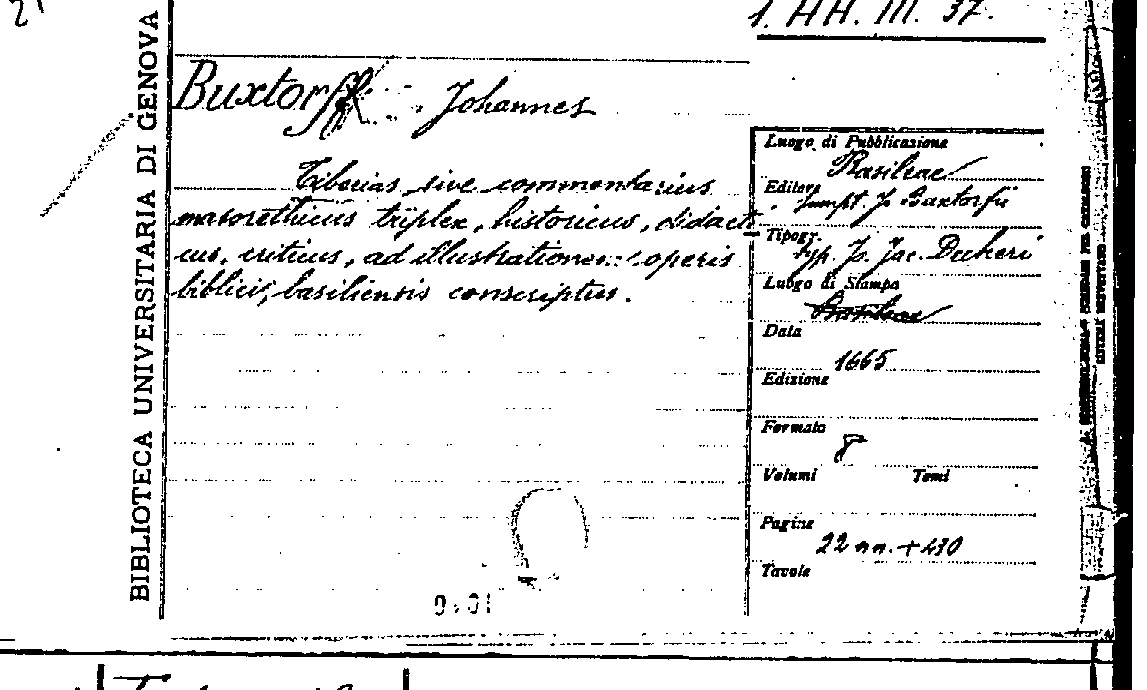 1. HH. III. 37.
BIBLIOTECA UNIVERSITARIA DI GENOVA
Buxtorff Johannes
Tiberias, sive commentarius
masorethicus triplex, historicus, didacti
cus, criticus, ad illustrationem operis
biblici, basiliensis conscriptus.
Luogo di Pubblicazione
Basileae
Editore
sumpt. J. Buxtorfii
Tipogr.
typ. Jo. Jac. Deckeri
Luogo di Stampa
Basileae
Data
1665
Edizione
Formato
8
Volumi Tomi
Pagine
22 nn. + 430
Tavole